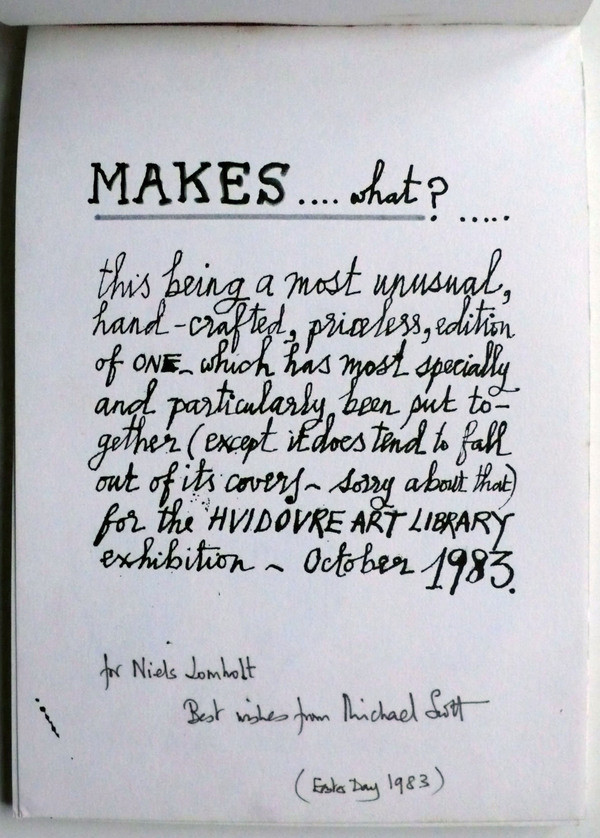 MAKES .... what? .....
this being a most unusual,
hand-crafted, priceless, edition
of ONE ~ which has most specially
and particularly been put to-
gether (except it does tend to fall
out of its covers ~ sorry about that)
for the HVIDOVRE ART LIBRARY
exhibition ~ October 1983.
for Niels Lomholt
Best wishes from Michael Scott
(Easter Day 1983)